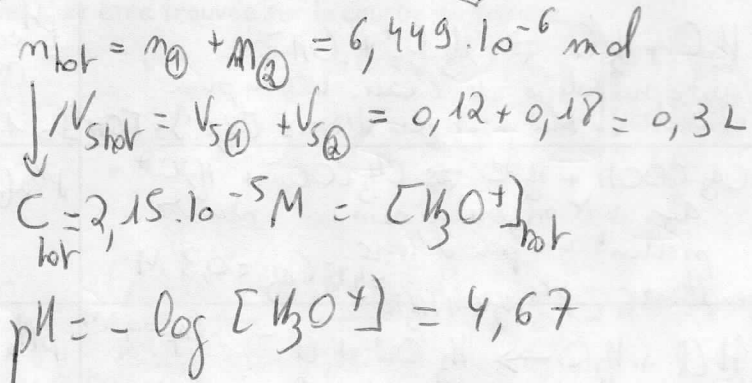 n_tot = n① + n② = 6,449.10^-6 mol
↓ /V_Stot = V_S① + V_S② = 0,12 + 0,18 = 0,3 L
C_tot = 2,15.10^-5 M = [H₃O⁺]_tot
pH = - log [H₃O⁺] = 4,67